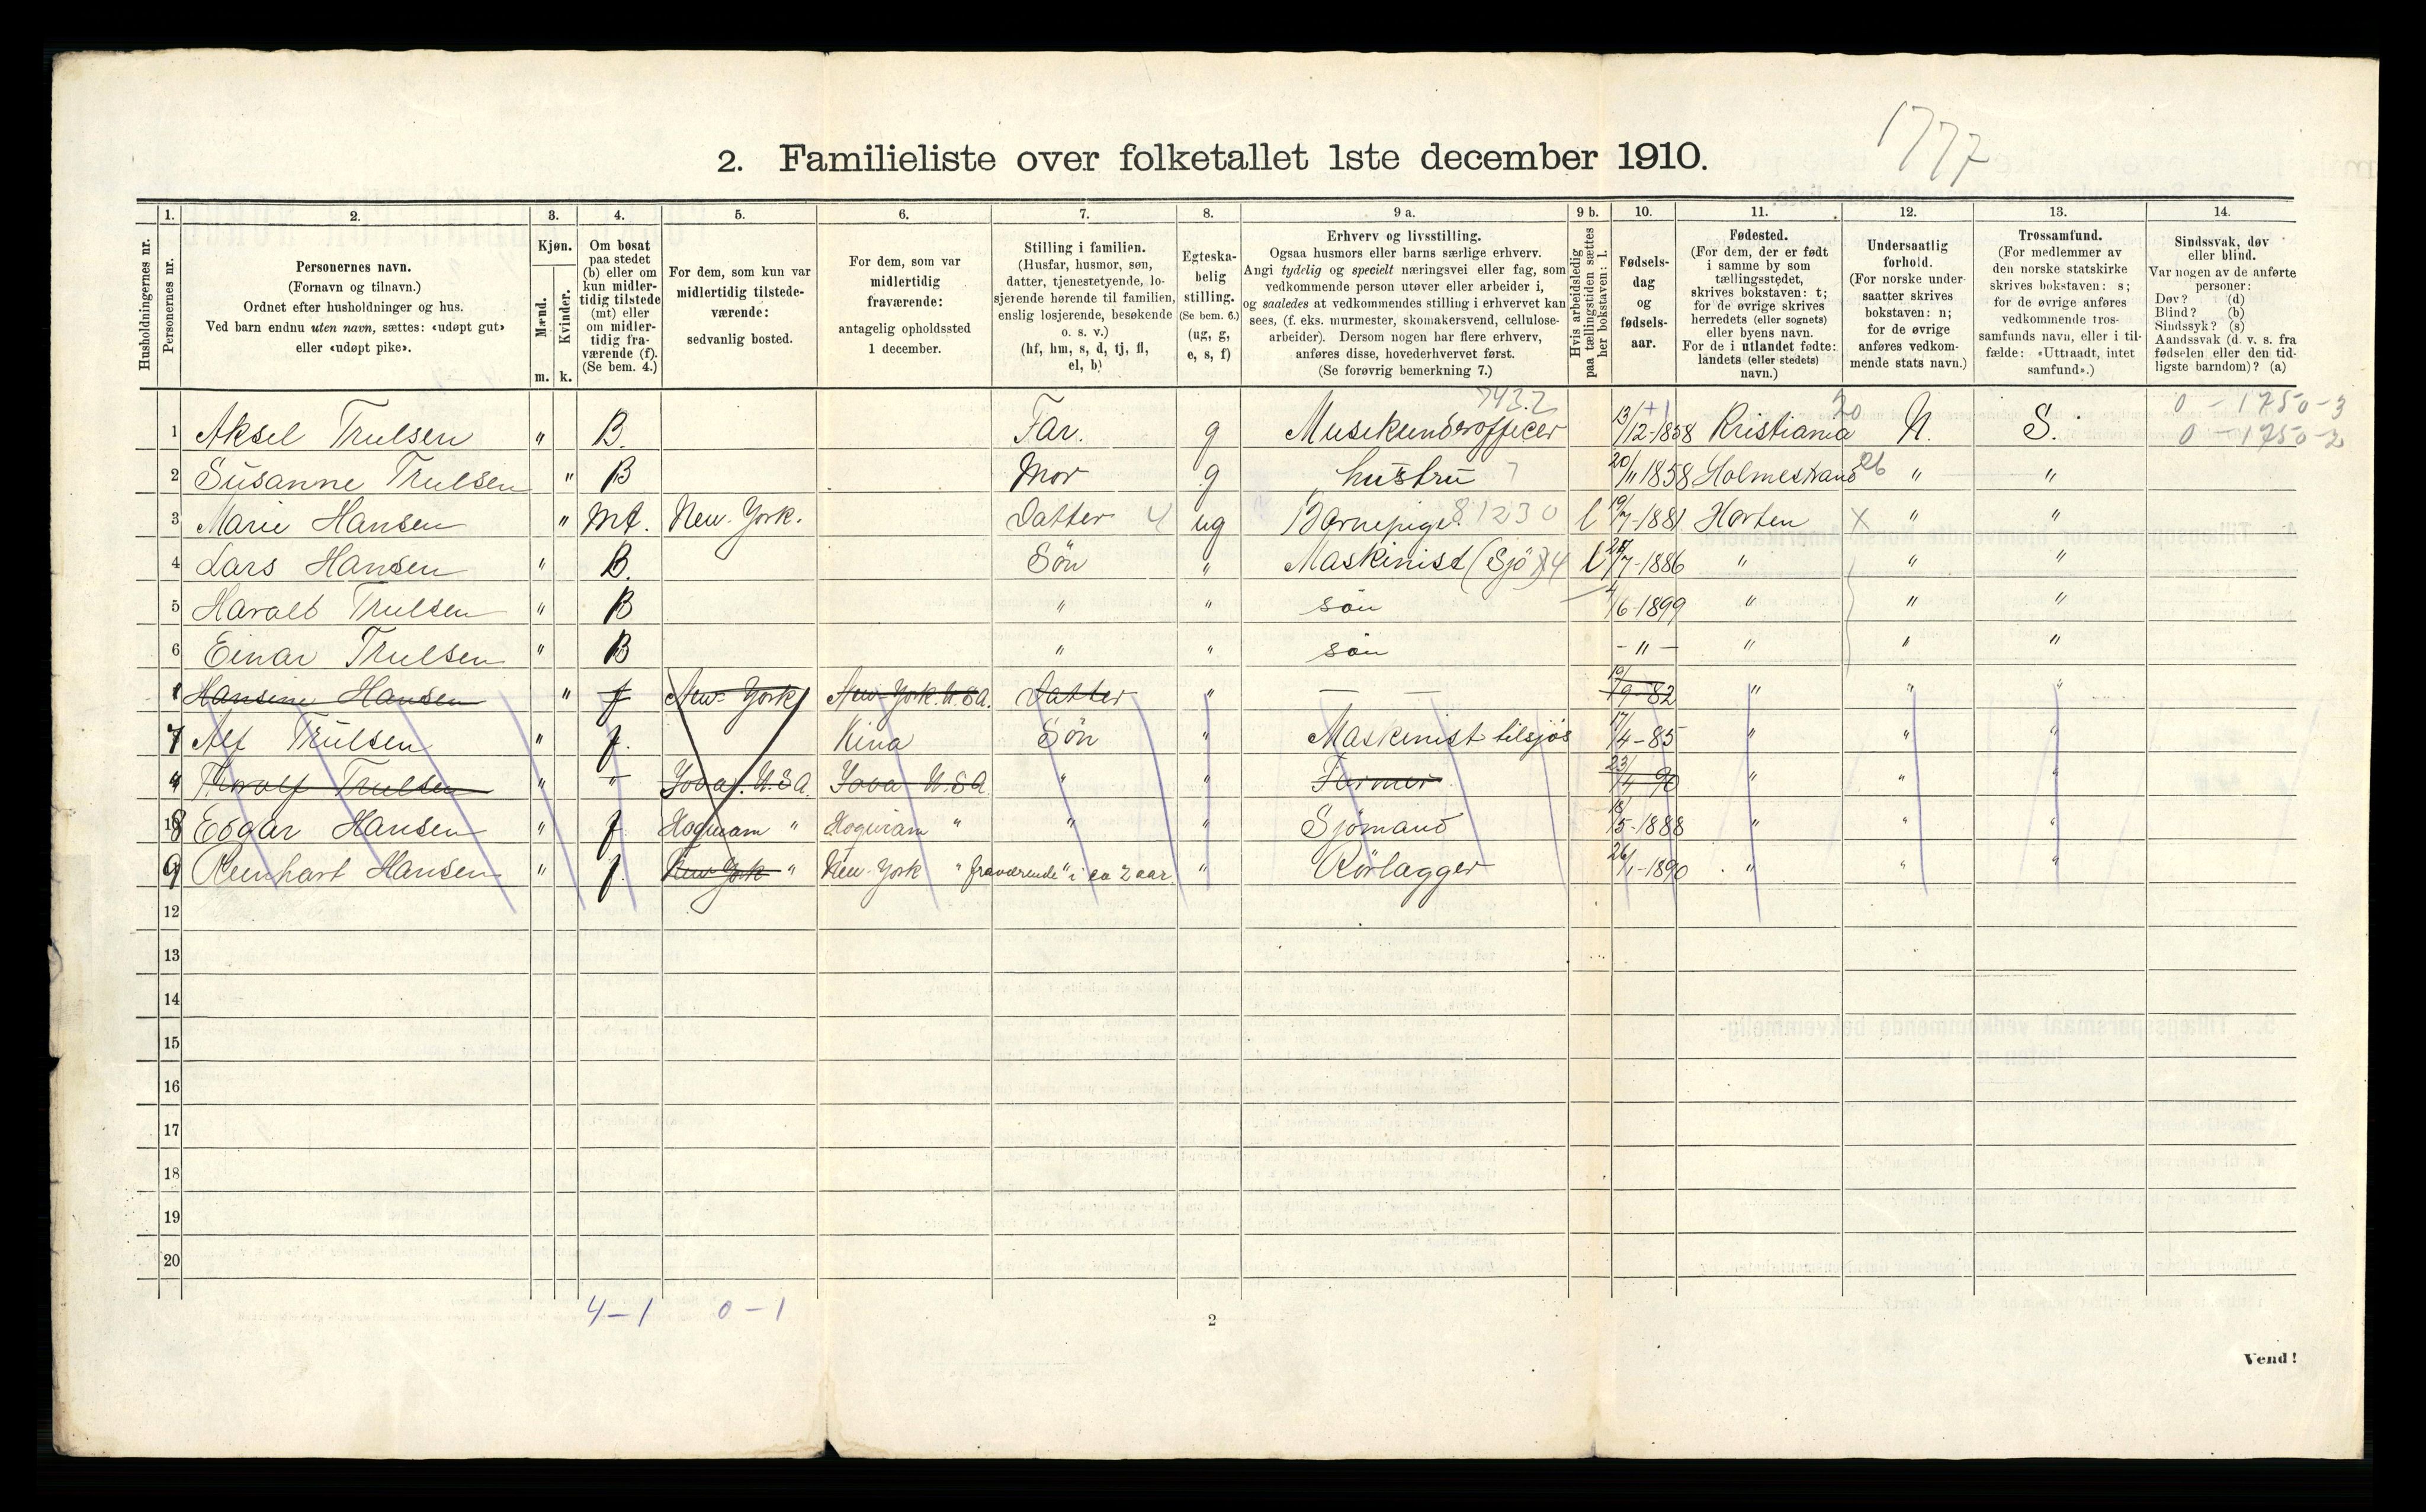 1777
2. Familieliste over folketallet 1ste december 1910.
Husholdningernes nr.
1.
Personernes nr.
2.
Personernes navn.
(Fornavn og tilnavn.)
Ordnet efter husholdninger og hus.
Ved barn endnu uten navn, sættes: «udøpt gut»
eller «udøpt pike».
3.
Kjøn.
Mænd.
Kvinder.
m. k.
4.
Om bosat
paa stedet
(b) eller om
kun midler-
tidig tilstede
(mt) eller
om midler-
tidig fra-
værende (f).
(Se bem. 4.)
5.
For dem, som kun var
midlertidig tilstede-
værende:
sedvanlig bosted.
6.
For dem, som var
midlertidig
fraværende:
antagelig opholdssted
1 december.
7.
Stilling i familien.
(Husfar, husmor, søn,
datter, tjenestetyende, lo-
sjerende hørende til familien,
enslig losjerende, besøkende
o. s. v.)
(hf, hm, s, d, tj, fl,
el, b)
8.
Egteska-
belig
stilling.
(Se bem. 6.)
(ug, g,
e, s, f)
9 a.
Erhverv og livsstilling.
Ogsaa husmors eller barns særlige erhverv.
Angi tydelig og specielt næringsvei eller fag, som
vedkommende person utøver eller arbeider i,
og saaledes at vedkommendes stilling i erhvervet kan
sees, (f. eks. murmester, skomakersvend, cellulose-
arbeider). Dersom nogen har flere erhverv,
anføres disse, hovederhvervet først.
(Se forøvrig bemerkning 7.)
9 b.
Hvis arbeidsledig
paa tællingstiden sættes
her bokstaven: l.
10.
Fødsels-
dag
og
fødsels-
aar.
11.
Fødested.
(For dem, der er født
i samme by som
tællingsstedet,
skrives bokstaven: t;
for de øvrige skrives
herredets (eller sognets)
eller byens navn.
For de i utlandet fødte:
landets (eller stedets)
navn.)
12.
Undersaatlig
forhold.
(For norske under-
saatter skrives
bokstaven: n;
for de øvrige
anføres vedkom-
mende stats navn.)
13.
Trossamfund.
(For medlemmer av
den norske statskirke
skrives bokstaven: s;
for de øvrige anføres
vedkommende tros-
samfunds navn, eller i til-
fælde: «Uttraadt, intet
samfund».)
14.
Sindssvak, døv
eller blind.
Var nogen av de anførte
personer:
Døv? (d)
Blind? (b)
Sindssyk? (s)
Aandssvak (d. v. s. fra
fødselen eller den tid-
ligste barndom)? (a)
7432 20 0 – 1750-3
1 Aksel Trulsen " B. Far. g Musikunderofficer 13/12-1858 Kristiania N. S. 0 – 1750-2
2 Susanne Trulsen " B Mor g hustru 7 20/11 1858 Holmestrand 06 " "
3 Marie Hansen " Mt. New-York. Datter 4 ug Barnepige 81230 l 19/7-1881 Horten X " "
4 Lars Hansen " B. Sön " Maskinist (Sjö) 4 l /7-1886 " " "
5 Harald Trulsen " B " " sön 4/6-1899 " " "
6 Einar Trulsen " B " " sön – " – " " "
Hansine Hansen " f New-York New-York. U.S.A. Datter " — — 19/9-82 " " "
7 Alf Trulsen " f. Kina Sön " Maskinist tilsjös 17/4-85 " " "
Thoralf Trulsen " " Iova. U.S.A. Iova U.S.A. " " Farmer 23/4 90 " " "
8 Edgar Hansen " f. Hoquiam " Hoquiam " " " Sjömand 18/5-1888 " " "
9 Reinhart Hansen " f. New-York " New-York " fraværende" i ca 2 aar " Rörlægger 26/1-1890 " " "
12
13
14
15
16
17
18
19
20
4 – 1 0 – 1
2
Vend!